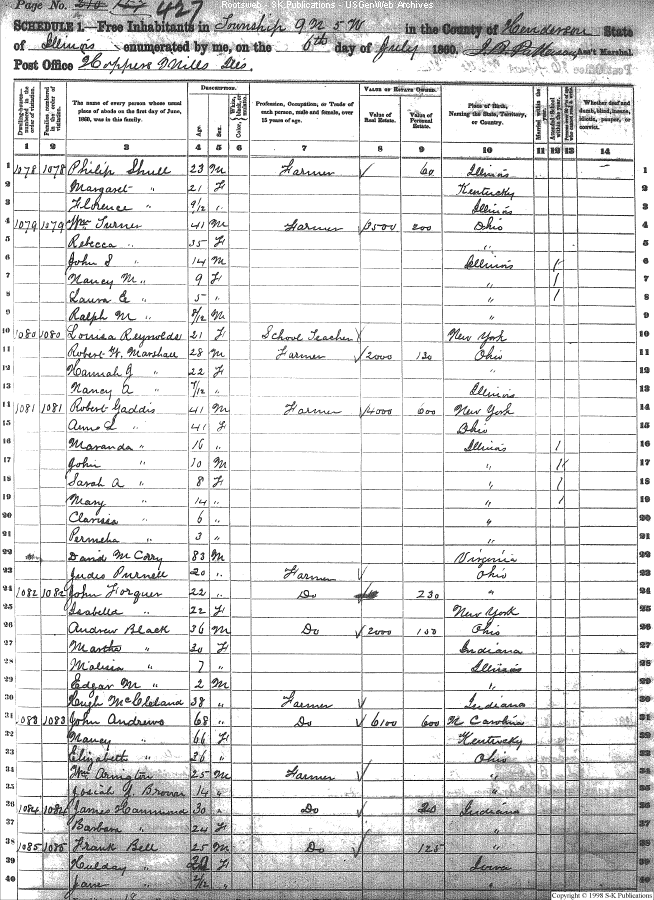 Rootsweb - SK Publications - USGenWeb Archives
Page No. 427
SCHEDULE 1.—Free Inhabitants in Township 9 N 5 W in the County of Henderson State
of Illinois enumerated by me, on the 6th day of July 1860. Ass't Marshal.
Post Office Hoppers Mills Ills.
DESCRIPTION. VALUE OF ESTATE OWNED.
Dwelling-houses—numbered in the order of visitation. Families numbered in the order of visitation. The name of every person whose usual place of abode on the first day of June, 1860, was in this family. Age. Sex. Color Profession, Occupation, or Trade of each person, male and female, over 15 years of age. Value of Real Estate. Value of Personal Estate. Place of Birth, Naming the State, Territory, or Country. Married within the year. Whether deaf and dumb, blind, insane, idiotic, pauper, or convict.
1 2 3 4 5 6 7 8 9 10 11 12 13 14
1 1078 1078 Philip Shull 23 M Farmer 60 Illinois 1
2 Margaret " 21 F Kentucky 2
3 Florence " 9/12 " Illinois 3
4 1079 1079 Wm Turner 41 M Farmer 200 Ohio 4
5 Rebecca " 35 F " 5
6 John S " 14 M Illinois 1 6
7 Nancy M " 9 F " 1 7
8 Laura C " 5 " " 1 8
9 Ralph M " 8/12 M " 9
10 1080 1080 Louisa Reynolds 21 F School Teacher New York 10
11 Robert W. Marshall 28 M Farmer 2000 130 Ohio 11
12 Hannah J " 22 F " 12
13 Nancy A " 7/12 " Illinois 13
14 1081 1081 Robert Gaddis 41 M Farmer 4000 600 New York 14
15 Ann L " 41 F Ohio 15
16 Maranda " 16 " Illinois 1 16
17 John " 10 M " 1 17
18 Sarah A " 8 F " 1 18
19 Mary " 14 " " 1 19
20 Clarissa " 6 " " 20
21 Permelia " 3 " " 21
22 David M Corry 83 M Virginia 22
23 Purnell 20 " Farmer Ohio 23
24 1082 1082 John Forquer 22 " Do 230 " 24
25 Isabella " 22 F New York 25
26 Andrew Black 36 M Do 2000 100 Ohio 26
27 Martha " 30 F Indiana 27
28 Malissa " 7 " Illinois 28
29 Edgar M " 2 M " 29
30 Hugh McCleland 38 " Farmer Indiana 30
31 1083 1083 John Andrews 68 " Do 6100 600 N Carolina 31
32 Nancy " 66 F Kentucky 32
33 Elizabeth " 36 " Ohio 33
34 Wm Arington 25 M Farmer " 34
35 Josiah Y Brown 14 " " 35
36 1084 1084 James Hammond 30 " Do 20 Indiana 36
37 Barbara " 24 F " 37
38 1085 1085 Frank Bell 25 M Do 125 " 38
39 Hulday " F Iowa 39
40 Jane " 2/12 " " 40
Copyright © 1998 S-K Publications